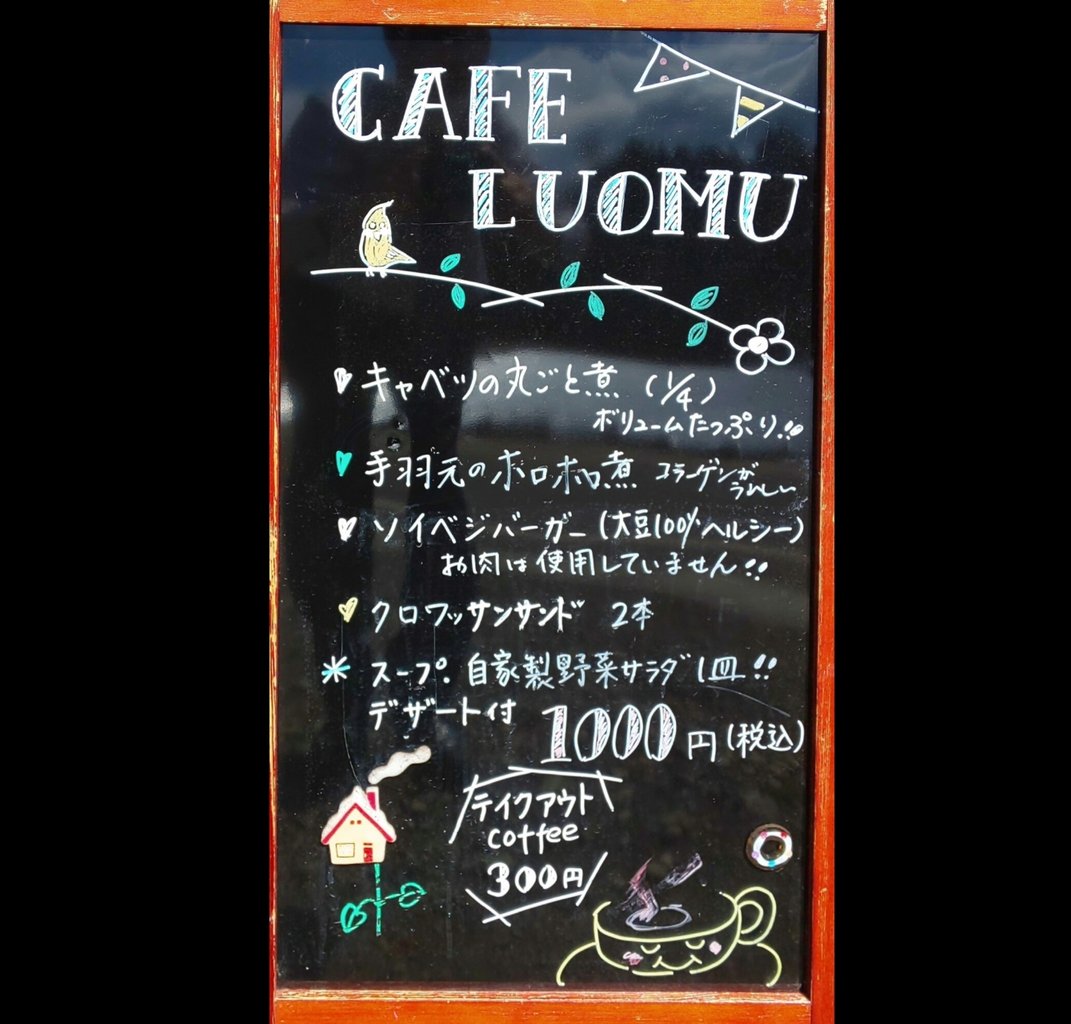 CAFE
LUOMU
キャベツの丸ごと煮 (1/4)
ボリュームたっぷり!!
手羽元のホロホロ煮 コラーゲンが
うれしい
ソイベジバーガー(大豆100%ヘルシー)
お肉は使用していません!!
クロワッサンサンド 2本
スープ. 自家製野菜サラダ1皿!!
デザート付 1000円(税込)
テイクアウト
coffee
300円